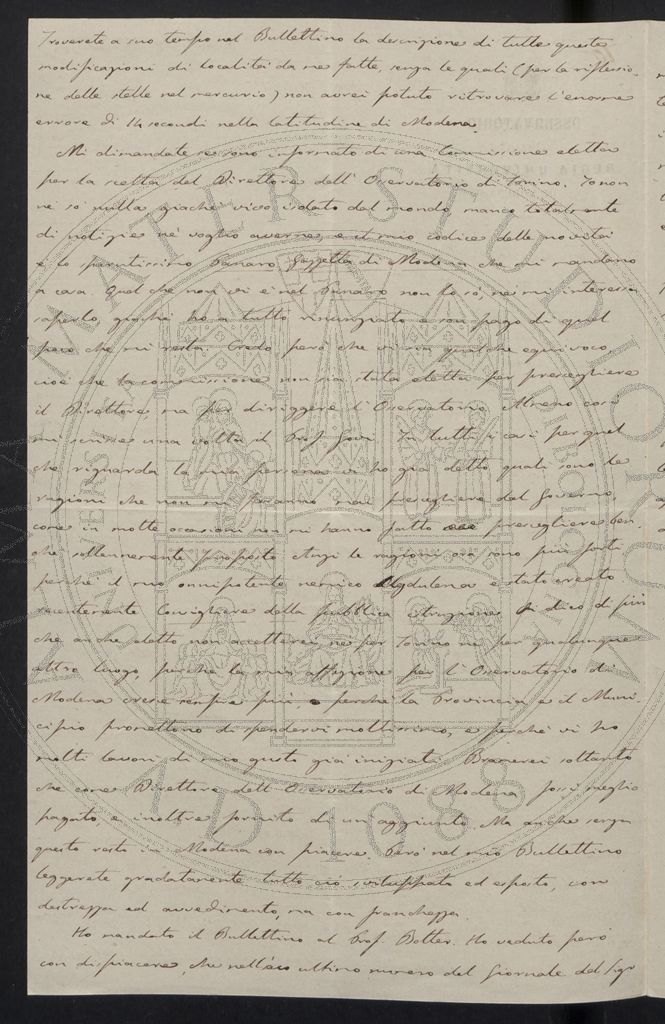 Troverete a suo tempo nel Bullettino la descrizione di tutte queste
modificazioni di località da me fatte, senza le quali (per la riflessio-
ne delle stelle nel mercurio) non avrei potuto ritrovare l'enorme
errore di 14 secondi nella latitudine di Modena.
Mi dimandate se sono informato di una Commissione eletta
per la scelta del Direttore dell'Osservatorio di Torino. Io non
ne so nulla giacchè vivo isolato dal mondo, manco totalmente
di notizie nè voglio averne, e il mio codice delle novità
è lo sparutissimo Panaro, Gazzetta di Modena che mi mandano
a casa. Quel che non vi è nel Panaro non lo so, nè mi interessa
saperlo, giacchè ho a tutto rinunziato e son pago di quel
poco che mi resta. Credo però che vi sia qualche equivoco
cioè che la commissione non sia stata eletta per prescegliere
il Direttore, ma per diriggere l'Osservatorio. Almeno così
mi scrisse una volta il Prof. Govi. In tutti i casi per quel
che riguarda la mia persona vi ho già detto quali sono le
ragioni che non mi faranno mai prescegliere dal Governo,
come in molte occasioni non mi hanno fatto prescegliere ben-
chè sollennemente proposto. Anzi le ragioni ora sono più forti
perchè il mio onnipotente nemico è stato creato
recentemente Consigliere della pubblica istruzione. Vi dico di più
che anche eletto non accetterei nè per Torino nè per qualunque
altro luogo, perchè la mia affezione per l'Osservatorio di
Modena cresce sempre più e perchè la Provincia e il Muni-
cipio promettono di spendervi moltissimo, e perchè vi ho
molti lavori di mio gusto già iniziati. Bramerei soltanto
che come Direttore dell'Osservatorio di Modena fossi meglio
pagato, e inoltre fornito di un aggiunto. Ma anche senza
questo resto in Modena con piacere. Però nel mio Bullettino
leggerete gradatamente tutto ciò sviluppato ed esposto, con
destrezza ed avvedimento, ma con franchezza.
Ho mandato il Bullettino al Prof. Botter. Ho veduto però
con dispiacere, che nell' ultimo numero del Giornale del Sigr
ALMA MATER STUDIORUM
A.D. 1088